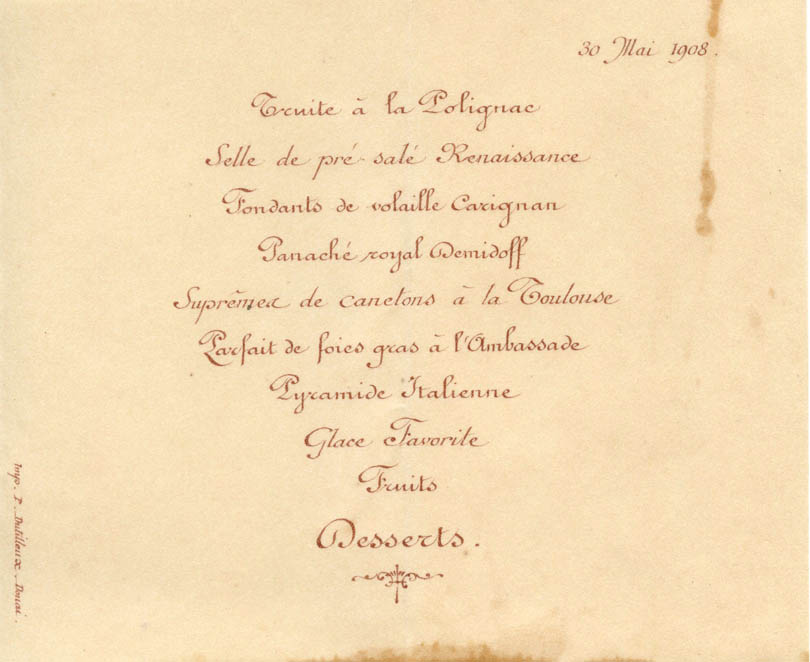 30 Mai 1908.
Truite à la Polignac
Selle de pré-salé Renaissance
Fondants de volaille Carignan
Panaché royal Demidoff
Suprêmes de canetons à la Toulouse
Parfait de foies gras à l'Ambassade
Pyramide Italienne
Glace Favorite
Fruits
Desserts.
Imp. P. Dutilleux - Douai.